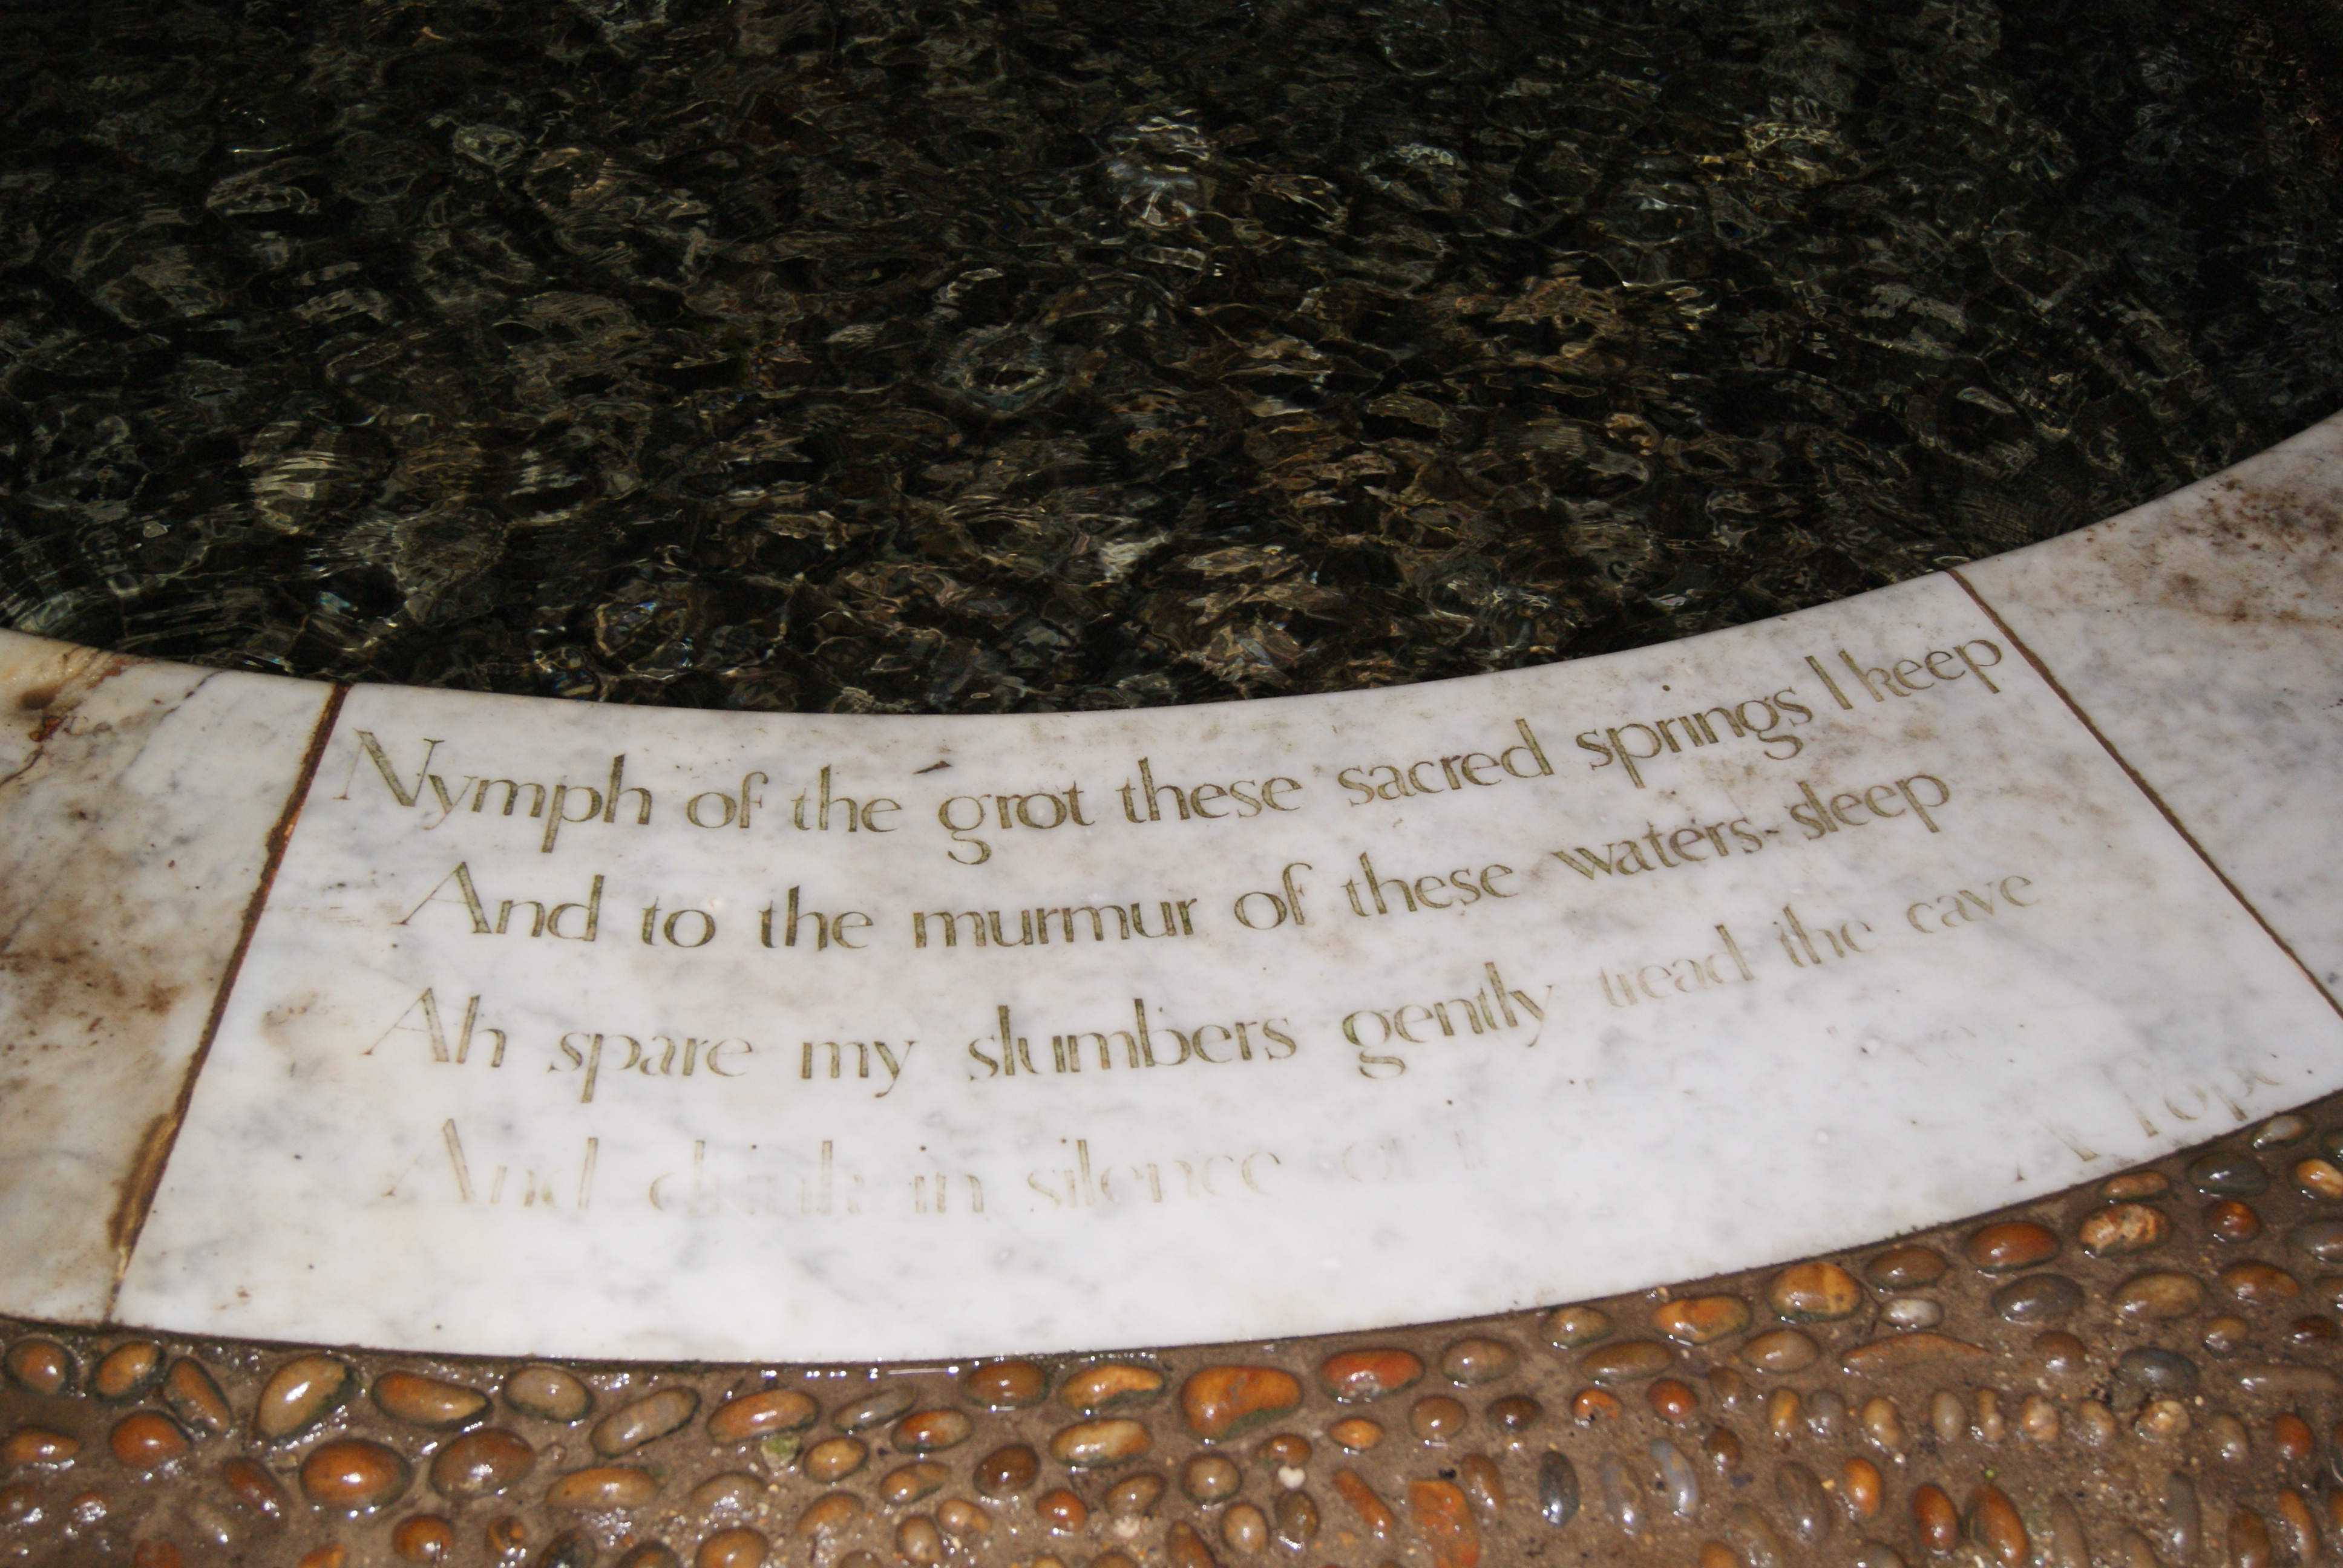 Nymph of the grot these sacred springs I keep
And to the murmur of these waters sleep
Ah spare my slumbers gently tread the cave
And drink in silence or
A Pope